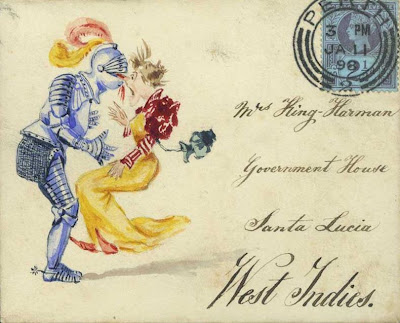 PERTH
3 PM
JA 11
99
2
Mrs King-Harman
Government House
Santa Lucia
West Indies.